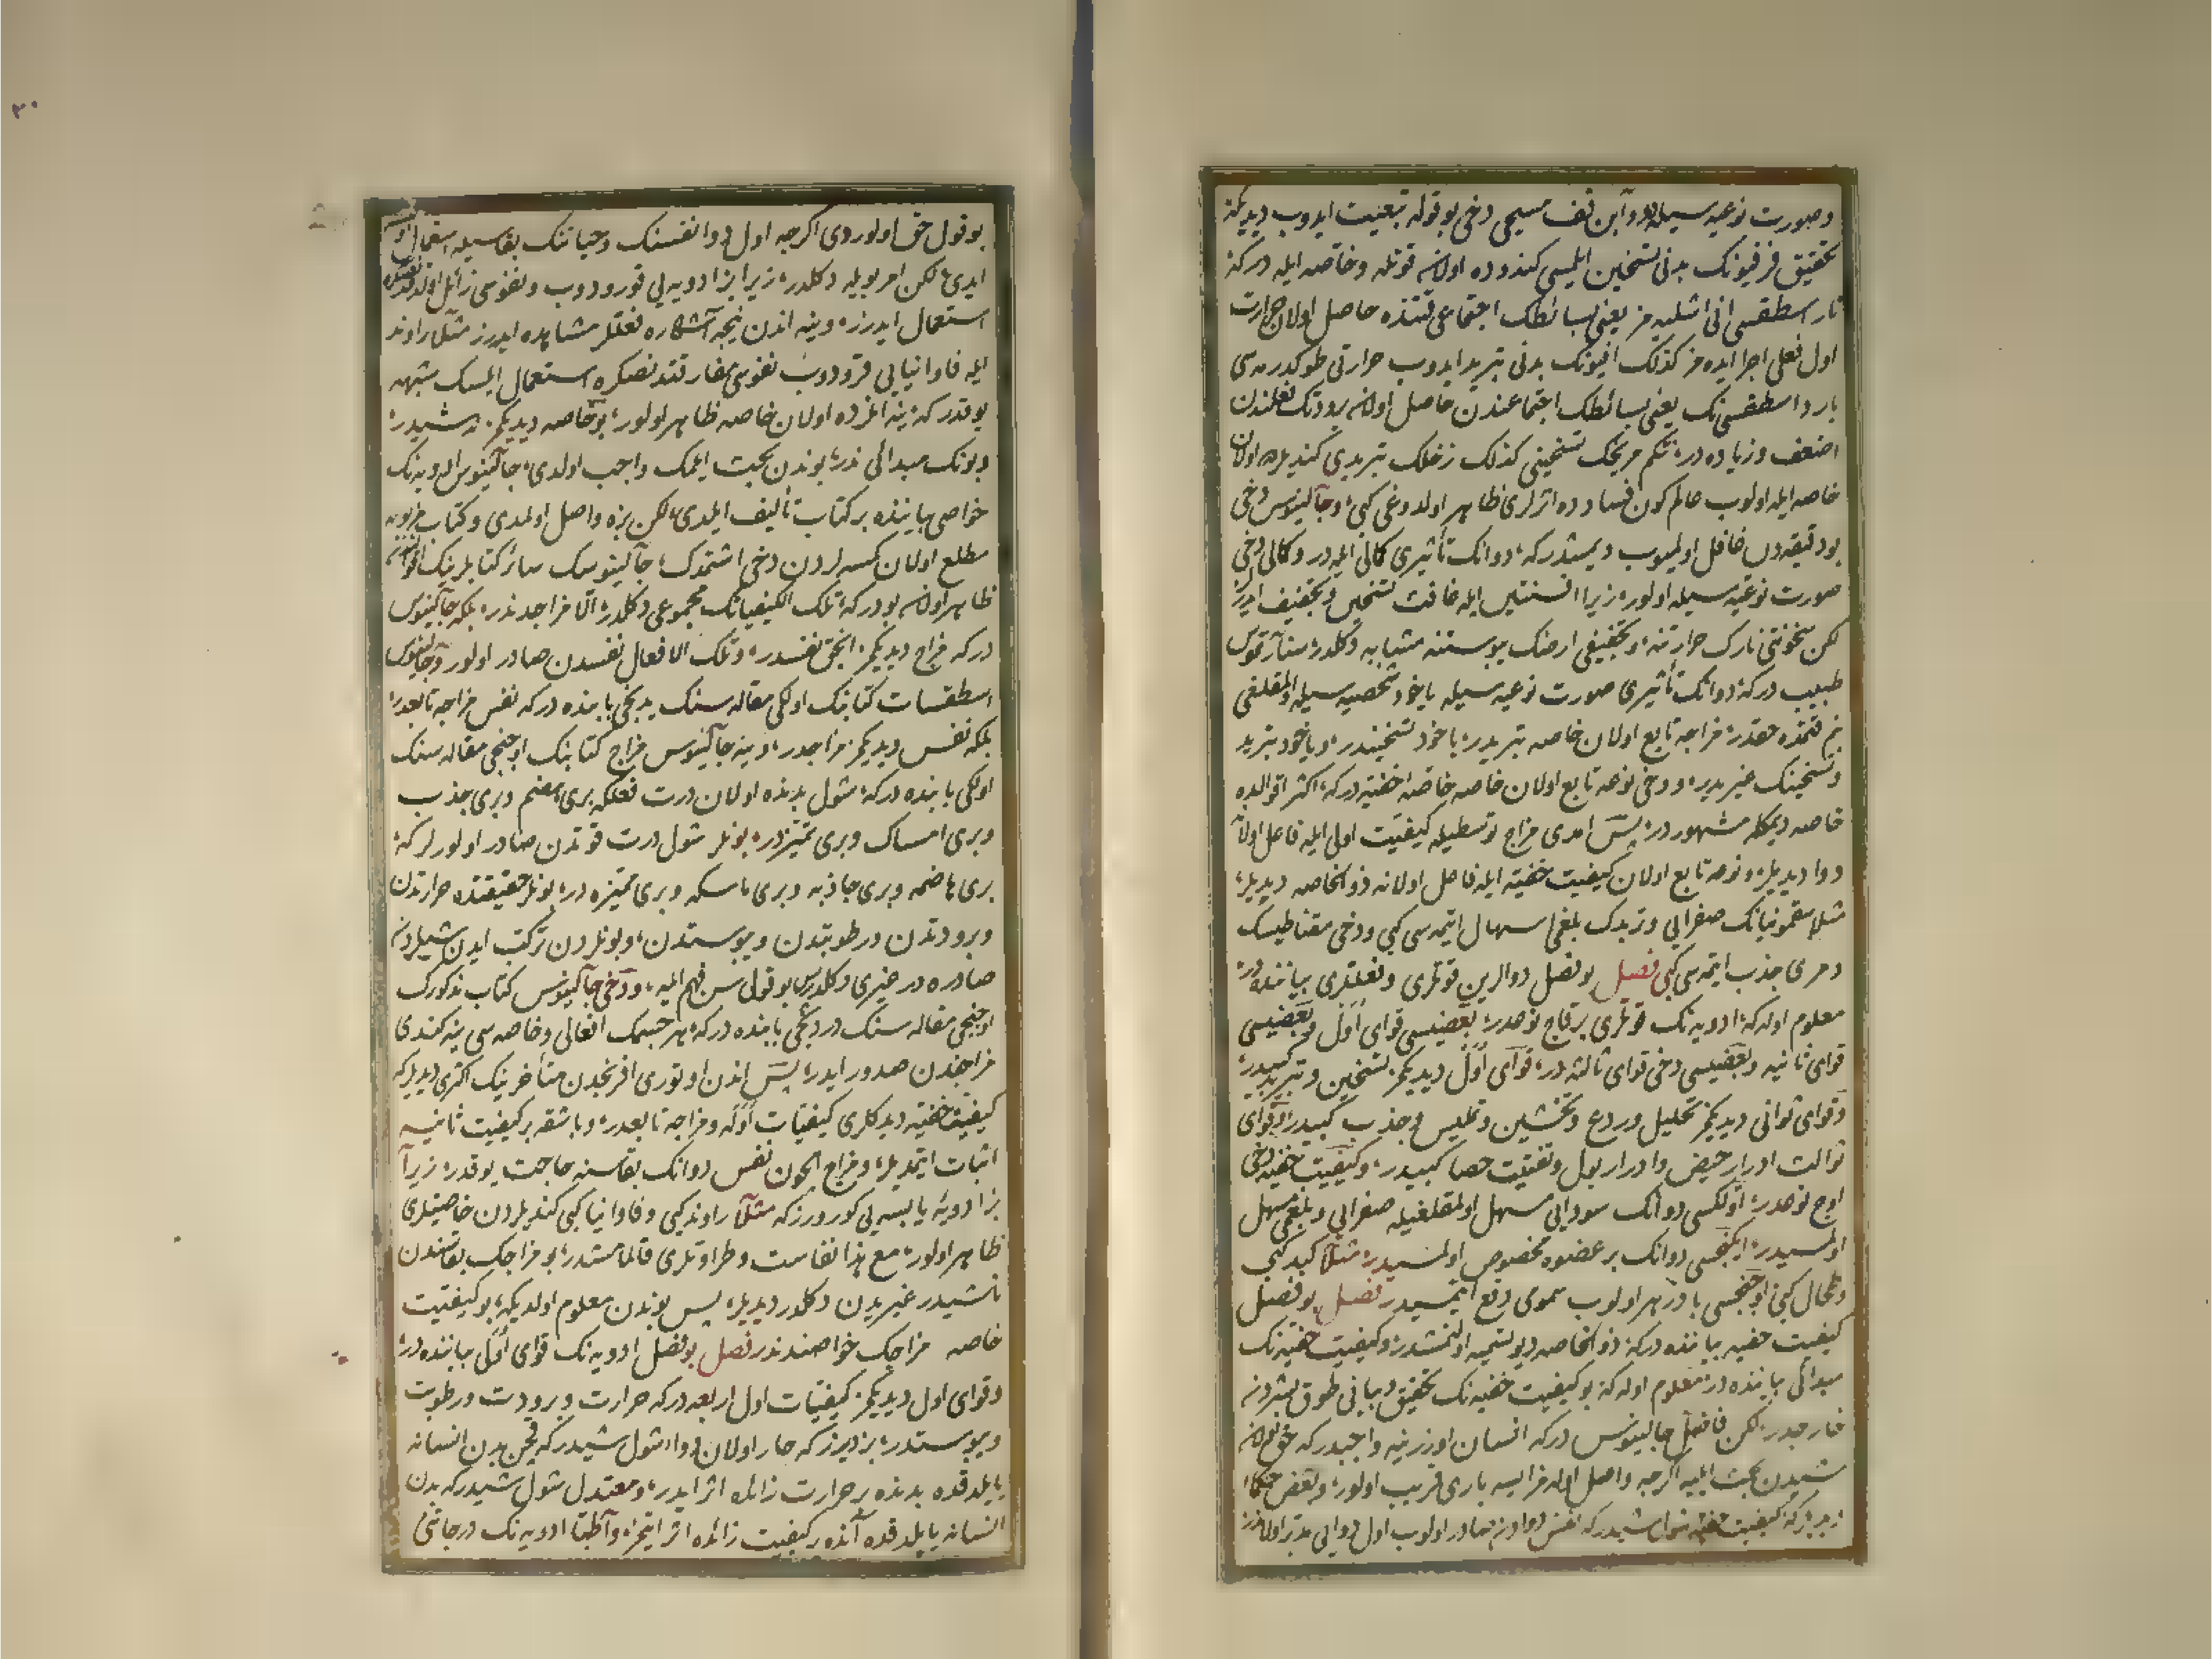 وصورت نوعیه سیله در وآبن قف مسیحی دخی بو قوله تبعیت ایدوب دیدیکه
تحقیق فرفیونک بدنی تسخین ایلمسی کندوده اولان قوتله وخاصه ایله درکه
نار اسطقسی انی اشلیه مز یعنی بسائطک اجتماعی وقتنده حاصل اولان حرارت
اول فعلی اجرا ایده مز کذلک افیونک بدنی تبرید ایدوب حرارتی طوکدرمه سی
بارد اسطقسی نک یعنی بسائطک اجتماعندن حاصل اولان برودتک فعلندن
اضعف وزیاده در نتکم مریخک تسخینی کذلک زحلک تبریدی کندیلرده اولان
خاصه ایله اولوب عالم کون فسادده اثرلری ظاهر اولدوغی کبی وجآلینوس دخی
بو دقیقه دن غافل اولمیوب دیمشدرکه دوانک تأثیری کمالی ایله در وکمالی دخی
صورت نوعیه سیله اولور زیرا افسنتین ایله غافت تسخین وتجفیف ایدر
لکن سخونتی نارک حرارتنه وتجفیفی ارضک یبوستنه مشابه دکلدر
طبیب درکه دوانک تأثیری صورت نوعیه سیله یاخود شخصیه سیله
مزاجه تابع اولان خاصه تبریدر یاخود تسخیندر ویاخود تبرید
وتسخینک غیریدر ودخی نوعه تابع اولان خاصه خاصه خفیه درکه اکثر اقوالده
خاصه دیمکله مشهوردر پس امدی مزاج توسطیله کیفیت اولی ایله فاعل اولان
دوا دیدیلر ونوعه تابع اولان کیفیت خفیه ایله فاعل اولانه ذو الخاصه دیدیلر
مثلا سقمونیانک صفرایی وتربدک بلغمی اسهال ایتمه سی کبی ودخی مقناطیسک
دمری جذب ایتمه سی کبی فصل بو فصل دوالرین قوتلری وفعللری بیاننده در
معلوم اوله که ادویه نک قوتلری برقاچ نوعدر بعضیسی قوای اول وبعضیسی
قوای ثانیه وبعضیسی دخی قوای ثالثه در قوای اول دیدیکمز تسخین وتبرید کبیدر
وقوای ثوانی دیدیکمز تحلیل وردع وتخشین وتملیس وجذب کبیدر وقوای
ثوالث ادرار حیض وادرار بول وتفتیت حصا کبیدر وکیفیت خفیه دخی
اوچ نوعدر اولکسی دوانک سودایی مسهل اولمقلغیله صفرایی وبلغمی مسهل
اولمسیدر ایکنجسی دوانک بر عضوه مخصوص اولمسیدر مثلا کبد کبی
وطحال کبی اوچنجسی پادزهر اولوب سمومی دفع ایتمسیدر فصل بو فصل
کیفیت خفیه بیاننده درکه ذو الخاصه دیو تسمیه اولنمشدر وکیفیت خفیه نک
مبدائی بیاننده در معلوم اوله که بو کیفیت خفیه نک تحقیق وبیانی طوق بشردن
خارجدر لکن فاضل جالینوس درکه انسان اوزرینه واجبدرکه حق اولان
شیدن بحث ایلیه اکرچه واصل اوله مزایسه باری قریب اولور وبعض حکما
دیدیلرکه کیفیت خفیه شول شیدرکه نفس دوادن صادر اولوب اول دوایی مدبر اولاندر
بو قول حق اولوردی اکرچه اول دوا نفسنک وحیاتنک بقاسیله استعمال
ایدی لکن امر بویله دکلدر زیرا بز ادویه یی قورودوب ونفوسی زائل اولدقدنصکره
استعمال ایدرز وینه اندن نیجه آشکاره فعللر مشاهده ایدرز مثلا راوند
ایله فاوانیایی قورودوب نفوسی مفارقتندنصکره استعمال ایلسک شبهه
یوقدرکه ینه انلرده اولان خاصه ظاهر اولور بو خاصه دیدیکمز نه شیدر
وبونک مبدائی ندر بوندن بحث ایلمک واجب اولدی جآلینوس ادویه نک
خواصی بیاننده بر کتاب تألیف ایلدی لکن بزه واصل اولمدی وکتاب مزبوره
مطلع اولان کمسه لردن دخی اشتمدک جآلینوسک سائر کتابلرینک اقوالندن
ظاهر اولان بودرکه تلک الکیفیاتک مجموعی دکلدر الا مزاجدندر بلکه جآلینوس
درکه مزاج دیدیکمز انجق نفسدر وتلک الافعال نفسدن صادر اولور وجالینوس
اسطقسات کتابنک اولکی مقاله سنک یدنجی بابنده درکه نفس مزاجه تابعدر
بلکه نفس دیدیکمز مزاجدر وینه جآلینوس مزاج کتابنک اوچنجی مقاله سنک
اولکی بابنده درکه شول بدنده اولان درت فعلکه بری هضم وبری جذب
وبری امساک وبری تمییزدر بونلر شول درت قوتدن صادر اولورلرکه
بری هاضمه وبری جاذبه وبری ماسکه وبری ممیزه در بونلر حقیقتده حرارتدن
وبرودتدن ورطوبتدن ویبوستدن وبونلردن ترکب ایدن شیلردن
صادره در غیری دکلدر پس بو قولی سن فهم ایله ودخی جآلینوس کتاب مذکورک
اوچنجی مقاله سنک دردنجی بابنده درکه هر جسمک افعالی وخاصه سی ینه کندی
مزاجندن صدور ایدر پس اندن اوتوری افرنجدن متأخرینک اکثری دیدیلرکه
کیفیت خفیه دیدکلری کیفیات اوله ومزاجه تابعدر وباشقه بر کیفیت ثانیه
اثبات ایتمدیلر ومزاج ایچون نفس دوانک بقاسنه حاجت یوقدر زیرا
بز ادویه یابسه یی کوروروز که مثلا راوند کبی وفاوانیا کبی کندیلردن خاصیتلری
ظاهر اولور مع هذا نفاست وطراوتلری قالمامشدر بو مزاجک بقاسندن
ناشیدر غیریدن دکلدر دیدیلر پس بوندن معلوم اولدیکه بو کیفیت
خاصه مزاجک خواصندندر فصل بو فصل ادویه نک قوای اولی بیاننده در
وقوای اول دیدیکمز کیفیات اول اربعه درکه حرارت وبرودت ورطوبت
ویبوستدر بز دیرز که حار اولان دوا شول شیدرکه قچن بدن انسانه
یایلدقده بدنده بر حرارت زائده اثر ایدر ومعتدل شول شیدرکه بدن
انسانه یایلدقده آنده بر کیفیت زائده اثر ایتمز وآطبا ادویه نک درجاتنی